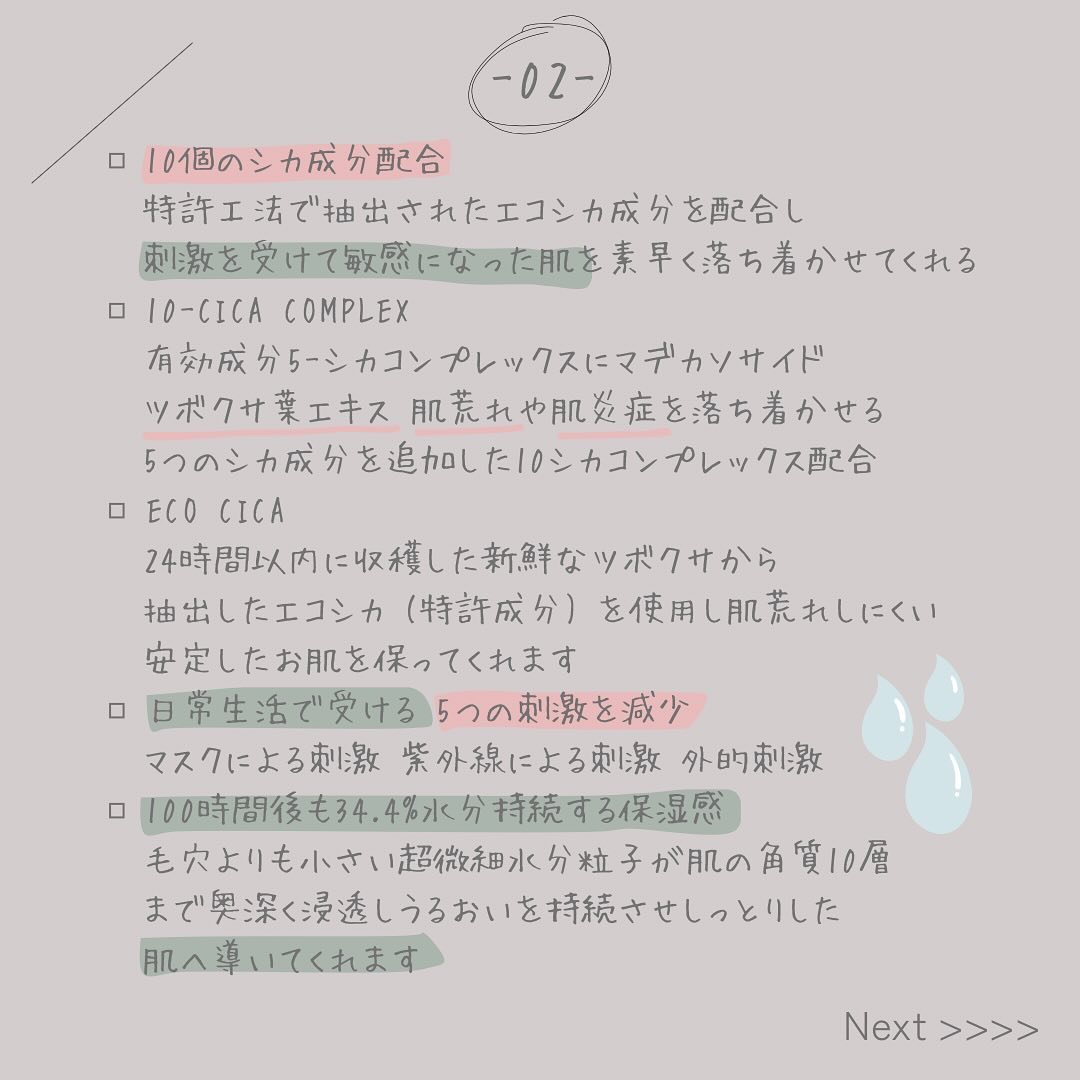 -02-
□ 10個のシカ成分配合
特許工法で抽出されたエコシカ成分を配合し
刺激を受けて敏感になった肌を素早く落ち着かせてくれる
□ 10-CICA COMPLEX
有効成分5-シカコンプレックスにマデカソサイド
ツボクサ葉エキス 肌荒れや肌炎症を落ち着かせる
5つのシカ成分を追加した10シカコンプレックス配合
□ ECO CICA
24時間以内に収穫した新鮮なツボクサから
抽出したエコシカ（特許成分）を使用し肌荒れしにくい
安定したお肌を保ってくれます
□ 日常生活で受ける 5つの刺激を減少
マスクによる刺激 紫外線による刺激 外的刺激
□ 100時間後も34.4%水分持続する保湿感
毛穴よりも小さい超微細水分粒子が肌の角質10層
まで奥深く浸透しうるおいを持続させしっとりした
肌へ導いてくれます
Next >>>>